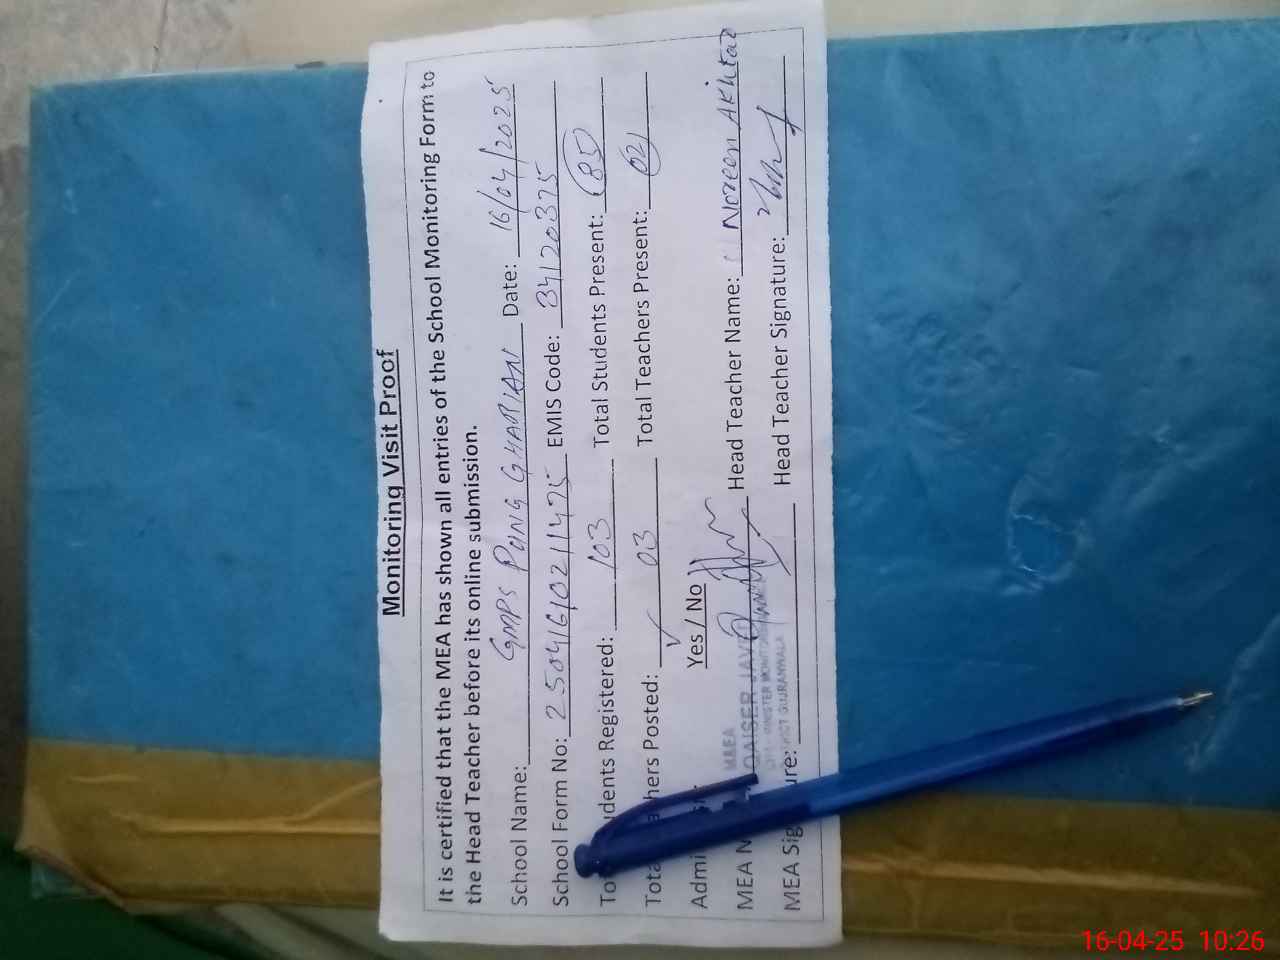 Monitoring Visit Proof
It is certified that the MEA has shown all entries of the School Monitoring Form to
the Head Teacher before its online submission.
School Name: GMPS PUNG GHARIAN Date: 16/04/2025
School Form No: 25041610211475 EMIS Code: 34120375
To udents Registered: 103 Total Students Present: 85
Tota hers Posted: 03 Total Teachers Present: 02
Admi Yes / No
MEA N QAISER JAV Head Teacher Name: Noreen Akhtar
MEA Sig ure: Head Teacher Signature:
M&EA
DISTRICT GUJRANWALA
16-04-25 10:26